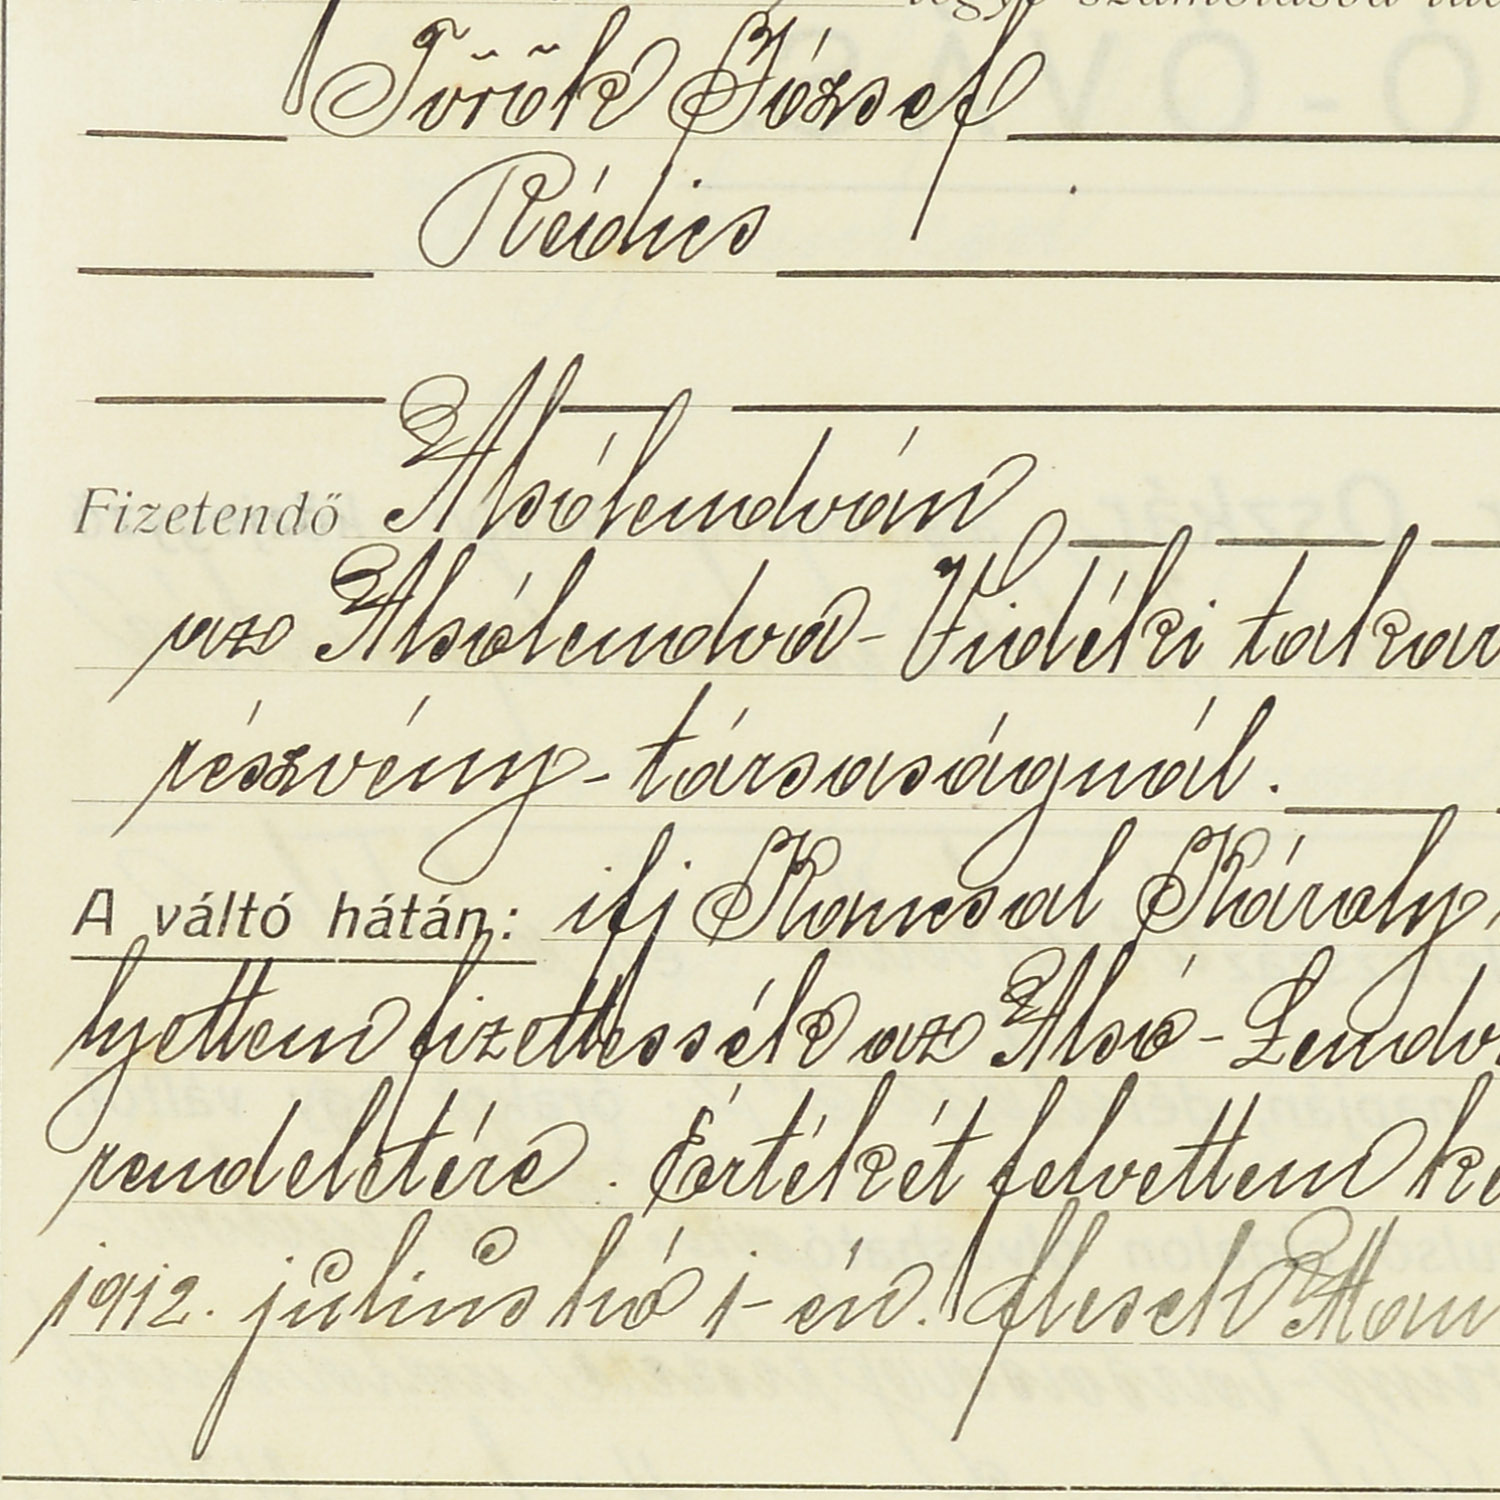 Török József
Rédics
Fizetendő Alsólendván
az Alsólendva-Vidéki takar
részvény-társaságnál.
A váltó hátán: ifj Kancsal Károly,
lyettem fizettessék az Alsó-Lendv
rendeletére. Értékét felvettem ké
1912. július hó 1-én. Flesch